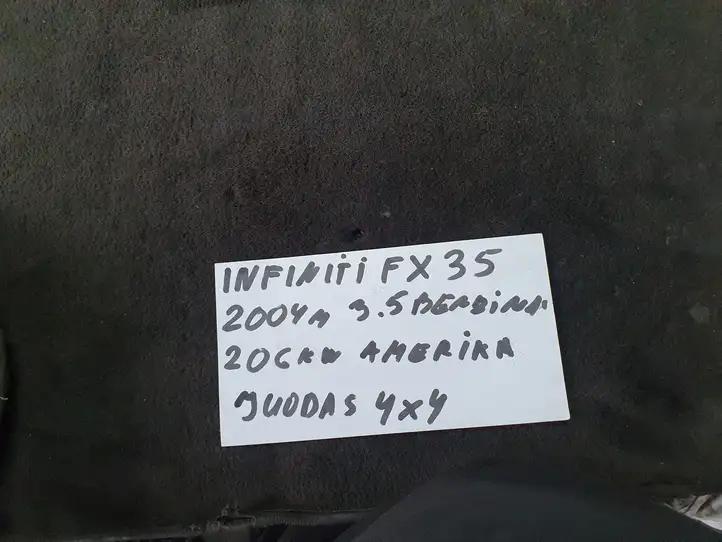 INFINITI FX35
2004m 3.5 BENZINA
206KW AMERIKA
JUODAS 4x4